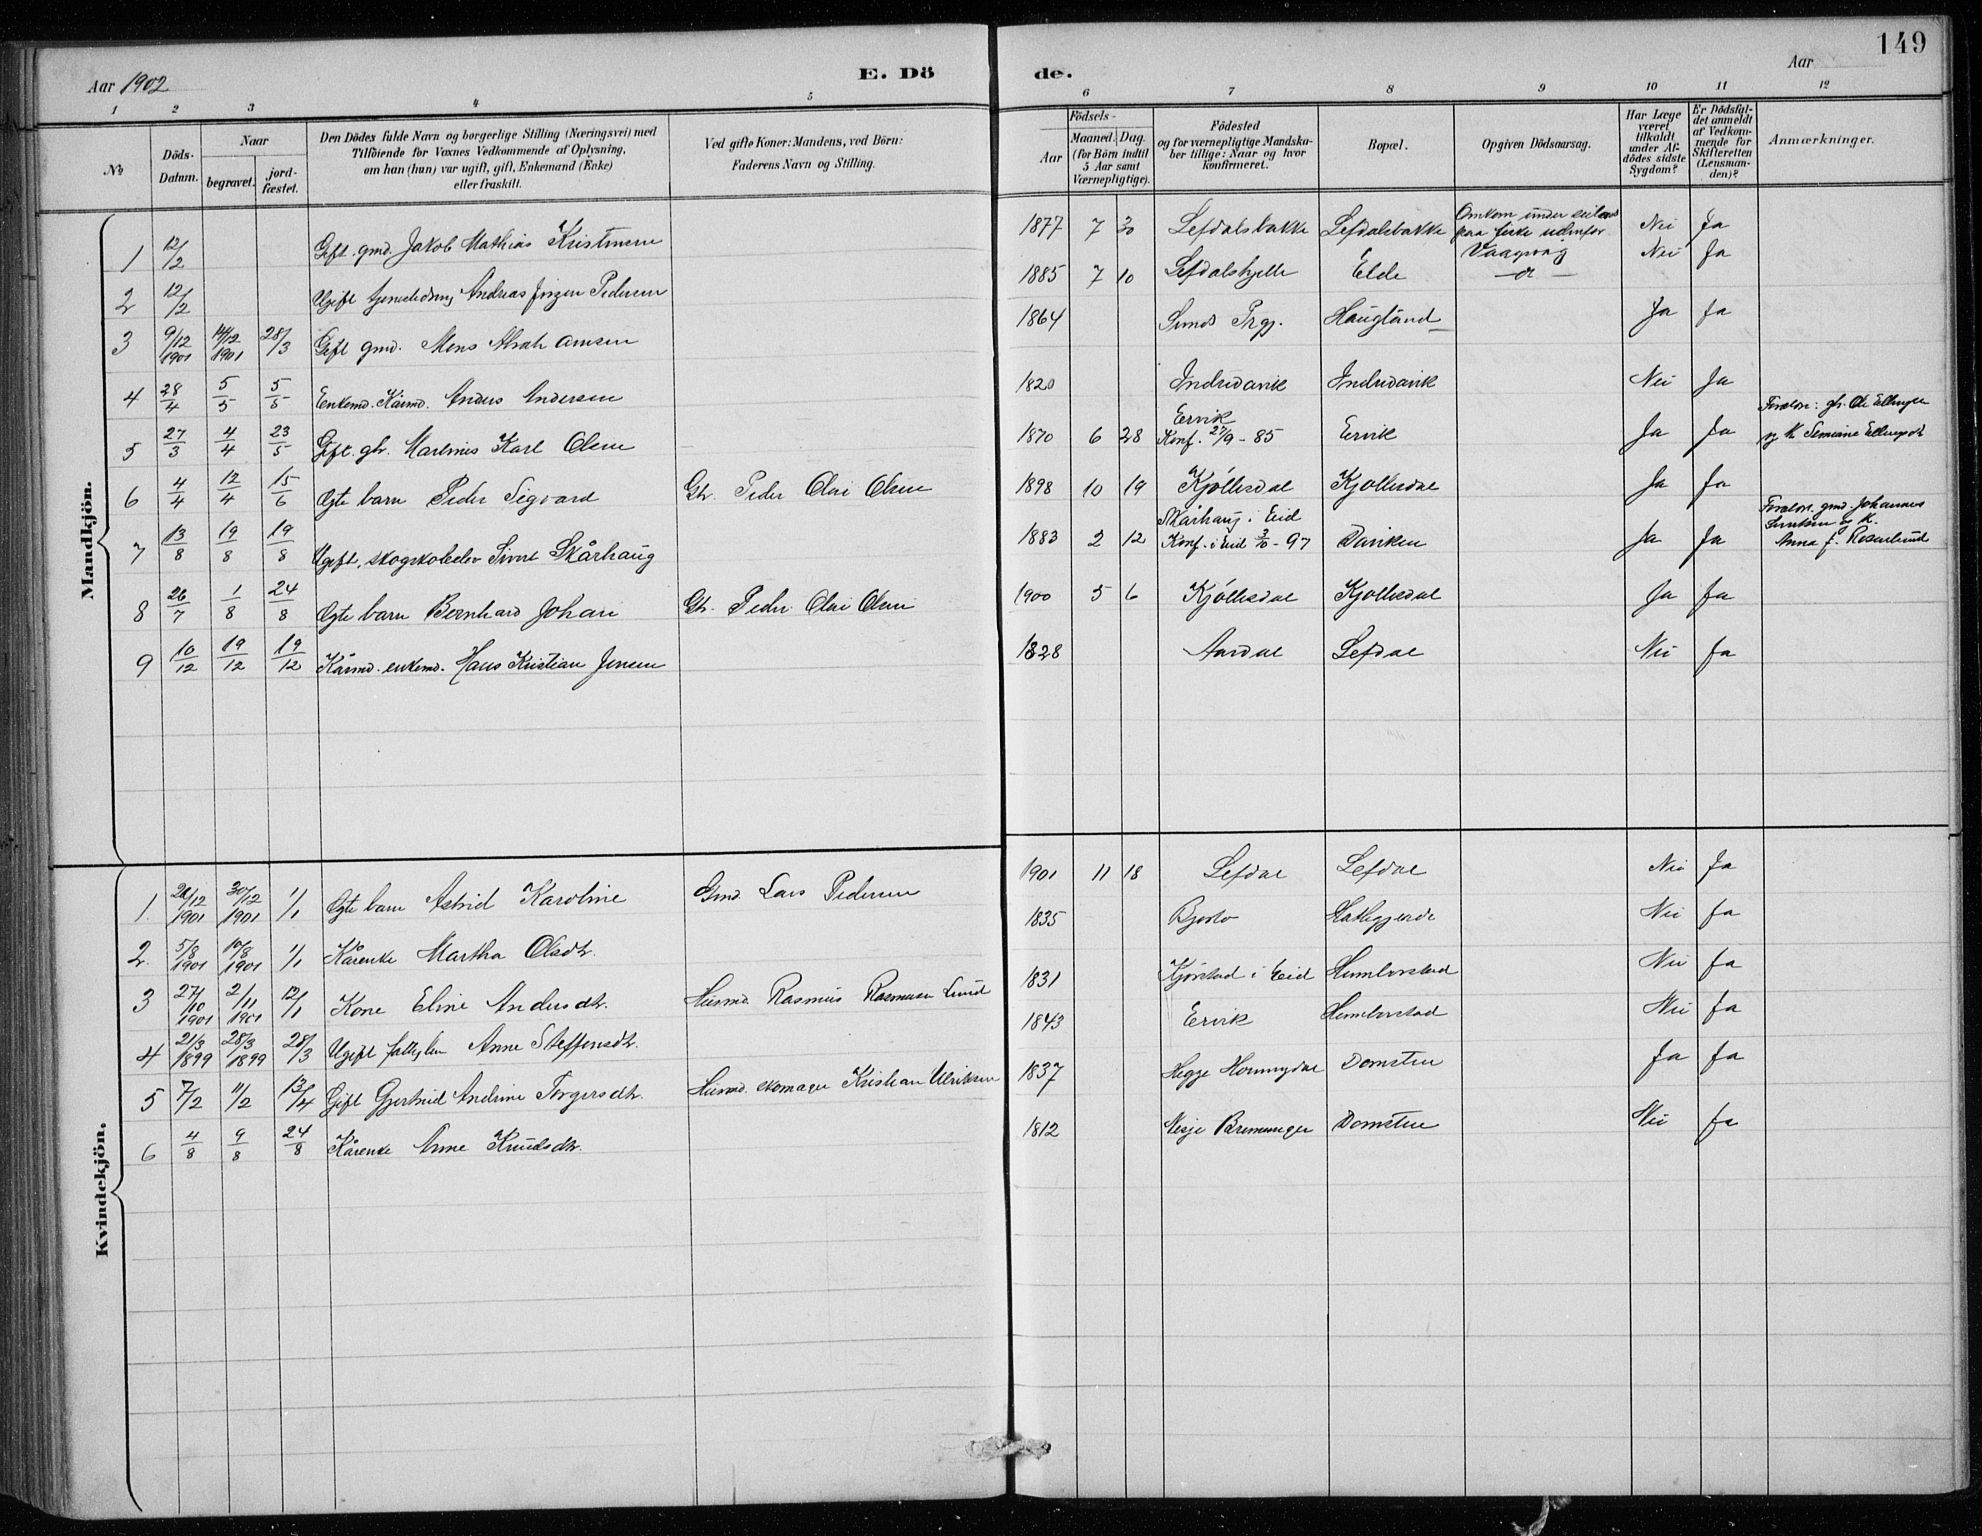 149
Aar 1902
E. Dö
de.
Aar
1 2 3 4 5 6 7 8 9 10 11 12
No
Döds-Datum.
Naar
begravet.
jord-fæstet.
Den Dödes fulde Navn og borgerlige Stilling (Næringsvei) med
Tilföiende for Voxnes Vedkommende af Oplysning,
om han (hun) var ugift, gift, Enkemand (Enke)
eller fraskilt.
Ved gifte Koner: Mandens, ved Börn:
Faderens Navn og Stilling.
Födsels-
Aar
Maaned. Dag.
(for Börn indtil
5 Aar samt
Værnepligtige).
Födested
og for værnepligtige Mandska-
ber tillige: Naar og hvor
konfirmeret.
Bopæl.
Opgiven Dödsaarsag.
Har Læge
været
tilkaldt
under Af-
dödes sidste
Sygdom?
Er Dödsfal-
det anmeldt
af Vedkom-
mende for
Skifteretten
(Lensman-
den)?
Anmærkninger.
Mandkjön.
1 12/2 Gift gmd. Jakob Mathias Kristensen 1877 7 30 Lefdalsbakke Lefdalsbakke Omkom under seilads paa fiske udenfor Vaagsvåg Nei Ja
2 12/2 Ugift tjenestedreng Andreas Jörgen Pedersen 1885 7 10 Lefdalshjelle Elde — " — Nei Ja
3 9/12 1901 14/12 1901 28/3 Gift gmd. Mons Abrahamsen 1864 Sunds Prgj. Haugland Ja Ja
4 28/4 5/5 5/5 Enkemd. Kårmd. Anders Andersen 1820 Indredavik Indredavik Nei Ja
5 27/3 4/4 23/5 Gift gbr. Martinus Karl Olsen 1870 6 28 Ervik Konf. 27/9 - 85 Ervik Ja Ja Forældre: gbr. Ole Ellingsen og K.
6 4/4 12/4 15/6 Egte barn Peder Sigvard Gbr. Peder Olai Olsen 1898 10 19 Kjöllesdal Kjöllesdal Ja Ja
7 13/8 19/8 19/8 Ugift, skogskoleelev Simet Skårhaug 1883 2 12 Skårhaug i Eid Konf. i Eid 3/10 - 97 Daviken Ja Ja Forældre. gmd. Johannes og K. Anna f. Rosenlund
8 26/7 1/8 24/8 Egte barn Bernhard Johan Gbr. Peder Olai Olsen 1900 5 6 Kjöllesdal Kjöllesdal Ja Ja
9 10/12 19/12 19/12 Kårmd. enkemd. Hans Kristian Jensen 1828 Aardal Lefdal Nei Ja
Kvindekjön.
1 20/12 1901 30/12 1901 1/1 Egte barn Astrid Karoline Gmd. Lars Pedersen 1901 11 18 Lefdal Lefdal Nei Ja
2 5/8 1901 10/8 1901 1/1 Kårenke Martha Olsdtr. 1835 Hatlegjerde Nei Ja
3 27/10 1901 2/11 1901 12/1 Kone Eline Andersdtr. Husmd. Rasmus Rasmusen Lund 1831 Kjörstad i Eid Humborstad Nei Ja
4 21/3 1899 28/3 1899 28/3 Ugift fattiglem Anne Steffensdtr. 1843 Ervik Humborstad Nei Ja
5 7/2 11/2 13/4 Gift Gjertrud Andrine Torgersdtr. Husmd. skomager Kristian Ulriksen 1837 Hegge Hornindal Domsten Ja Ja
6 4/8 9/8 24/8 Kårenke Anne Knudsdtr. 1812 Nesje Bremanger Domsten Nei Ja